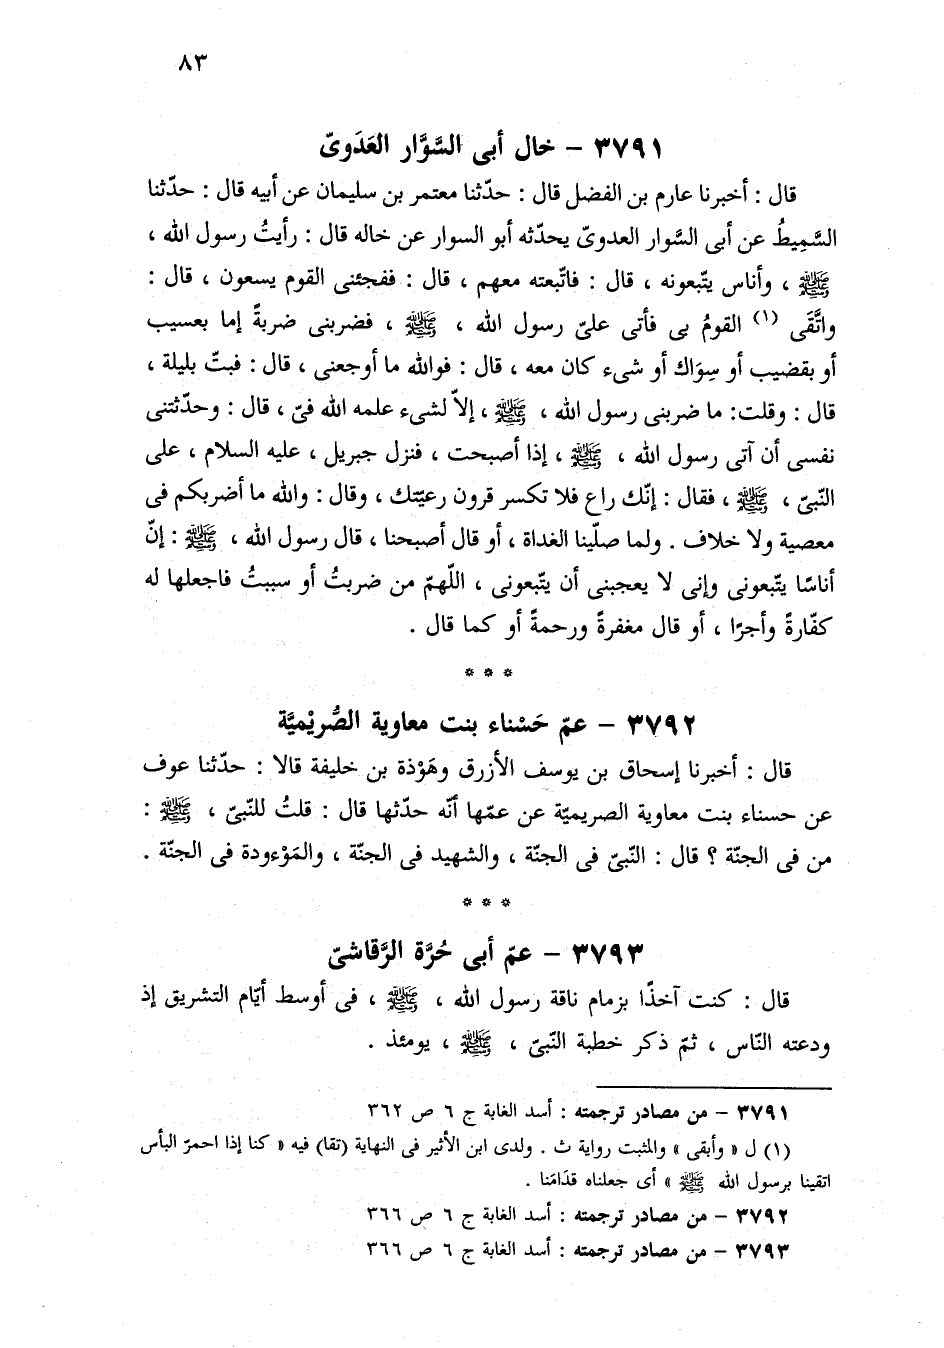 ٨٣
٣٧٩١ - خال أبى السَّوَّار العَدَوىّ
قال : أخبرنا عارم بن الفضل قال : حدّثنا معتمر بن سليمان عن أبيه قال : حدّثنا
السَّمِيطُ عن أبى السَّوار العدوىّ يحدّثه أبو السوار عن خاله قال : رأيتُ رسول الله ،
ﷺ ، وأناس يتّبعونه ، قال : فاتّبعته معهم ، قال : ففجئنى القوم يسعون ، قال :
واتَّقَى (١) القومُ بى فأتى علىّ رسول الله ، ﷺ ، فضربنى ضربةً إما بعسيب
أو بقضيب أو سِوَاك أو شىء كان معه ، قال : فوالله ما أوجعنى ، قال : فبتّ بليلة ،
قال : وقلت: ما ضربنى رسول الله ، ﷺ ، إلاّ لشىء علمه الله فىّ ، قال : وحدّثتنى
نفسى أن آتى رسول الله ، ﷺ ، إذا أصبحت ، فنزل جبريل ، عليه السلام ، على
النّبىّ ، ﷺ ، فقال : إنّك راع فلا تكسر قرون رعيّتك ، وقال : والله ما أضربكم فى
معصية ولا خلاف . ولما صلّينا الغداة ، أو قال أصبحنا ، قال رسول الله ، ﷺ : إنّ
أناسًا يتّبعونى وإنى لا يعجبنى أن يتّبعونى ، اللّهمّ من ضربتُ أو سببتُ فاجعلها له
كفّارةً وأجرًا ، أو قال مغفرةً ورحمةً أو كما قال .
* * *
٣٧٩٢ - عمّ حَسْناء بنت معاوية الصُّريْميَّة
قال : أخبرنا إسحاق بن يوسف الأزرق وهَوْذة بن خليفة قالا : حدّثنا عوف
عن حسناء بنت معاوية الصريميّة عن عمّها أنّه حدّثها قال : قلتُ للنّبىّ ، ﷺ :
من فى الجنّة ؟ قال : النّبىّ فى الجنّة ، والشهيد فى الجنّة ، والمَوْءودة فى الجنّة .
* * *
٣٧٩٣ - عمّ أبى حُرَّة الرَّقاشىّ
قال : كنت آخذًا بزمام ناقة رسول الله ، ﷺ ، فى أوسط أيّام التشريق إذ
ودعته النّاس ، ثمّ ذكر خطبة النّبىّ ، ﷺ ، يومئذ .
٣٧٩١ - من مصادر ترجمته : أسد الغابة ج ٦ ص ٣٦٢
(١) ل « وأبقى » والمثبت رواية ث . ولدى ابن الأثير فى النهاية (تقا) فيه « كنا إذا احمرّ البأس
اتقينا برسول الله ﷺ » أى جعلناه قدَامَنا .
٣٧٩٢ - من مصادر ترجمته : أسد الغابة ج ٦ ص ٣٦٦
٣٧٩٣ - من مصادر ترجمته : أسد الغابة ج ٦ ص ٣٦٦